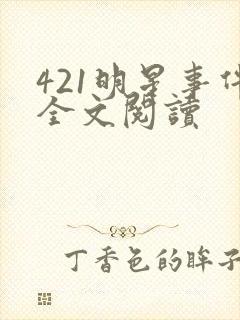 421明星事件
全文閱讀
丁香色的眸子